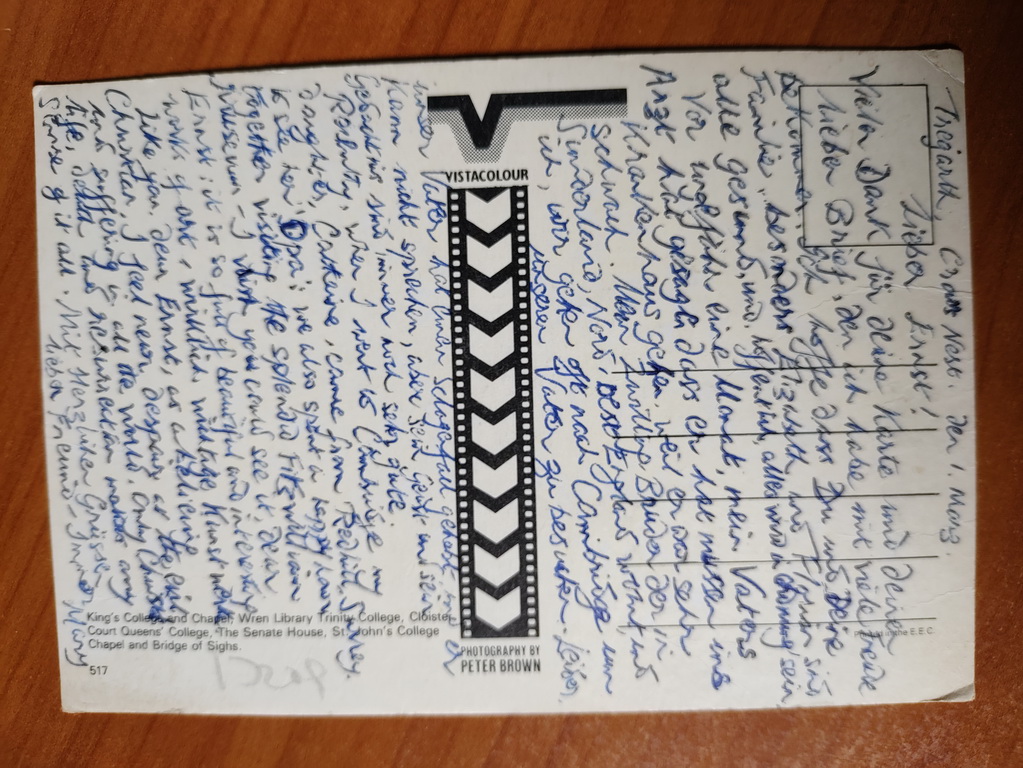 Tregarth, den 1. Mars.
Lieber Ernst!
Vielen Dank für deine Karte und deinen
lieben Brief, den ich habe mit viele Freude
bekommen. Ich hoffe dass Du und Deine
Familie, besonders Elzbeth und Florian sind
alle gesund, und hoffentlich, alles wird in Ordnung sein,
Vor ungefähr eine Monat, mein Vaters
Arzt hat gesagt, dass er hat mussen ins
Krankenhaus gehen, weil er war sehr
schwach. Mein Zwillings Bruder der in
Sunderland, Nord Ost England wohnt, und
ich, wir gehen oft nach Cambridge um
unseren Vater zu besuchen. Leider,
unser Vater hat einen Schlagenfall gehabt, er
kann nicht sprechen, aber sein Geist und sein
Gedächtnis sind immer noch sehr gute.
Recently, when I went to Cambridge my
daughter, Catherine, came from Redhill, Surrey
to see her Opa; we also spent a happy time
together visiting the splendid Fitzwilliam
Museum - I wish you could see it, dear
Ernst; it is so full of beautiful and interesting
works of art, wirklich, wichtige Kunstwerke
Like you, dear Ernst, as a believing
Christian, I feel near despair at the evil
and suffering in all the world. Only Christ's
life, death and resurrection makes any
sense of it all. Mit Herzlichen Grüssen
lieber Freund - Immer, Mary
VISTACOLOUR
PHOTOGRAPHY BY
PETER BROWN
King's College and Chapel, Wren Library Trinity College, Cloister
Court Queens' College, The Senate House, St. John's College
Chapel and Bridge of Sighs.
517
Printed in the E.E.C.